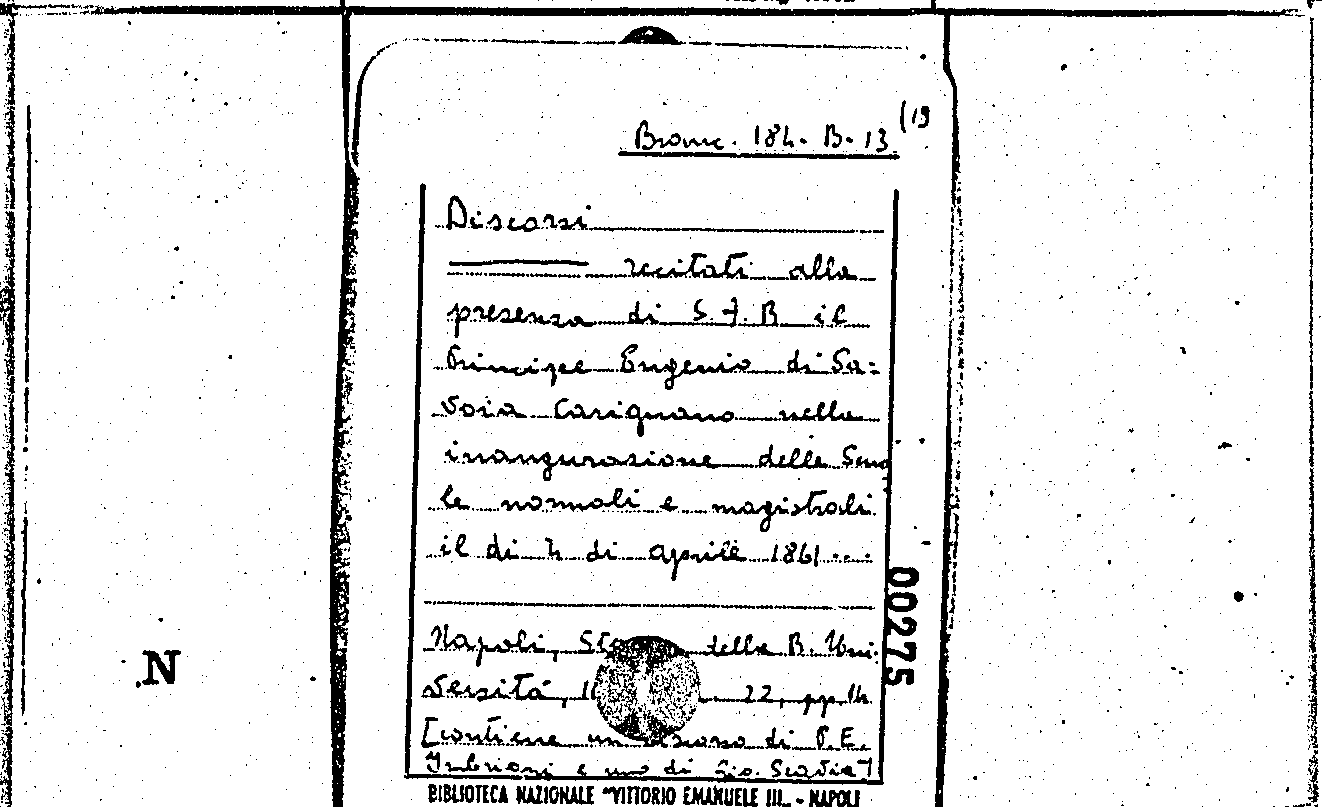 (19
Branc. 184. B. 13
Discorsi
recitati alla
presenza di S. A. R il
Principe Eugenio di Sa=
voia Carignano nella
inaugurazione delle Scuo
le normali e magistrali
il di 4 di aprile 1861...
Napoli, della R. Uni.
versità, 22, pp. 14
[contiene un discorso di P. E.
Imbriani e uno di Gio. Scavia]
002275
N
BIBLIOTECA NAZIONALE "VITTORIO EMANUELE III" - NAPOLI